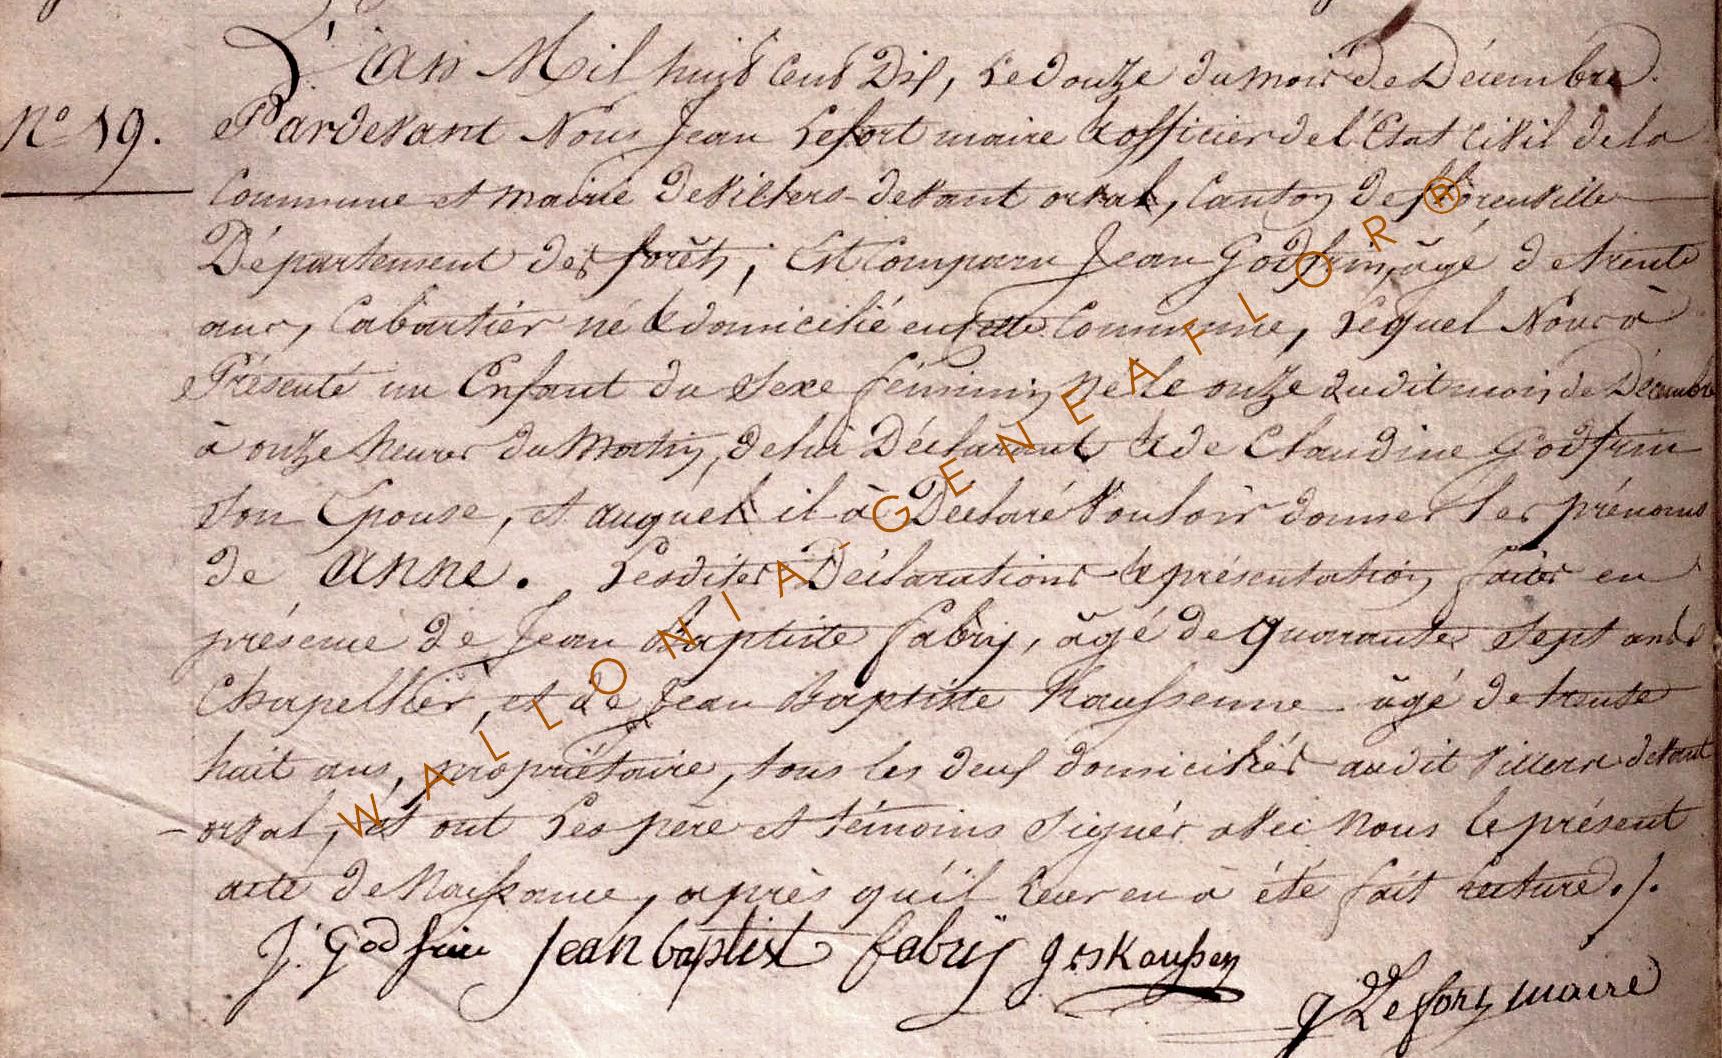 L'an Mil huit Cent Dix, Le douze du mois de Décembre.
N° 19. Pardevant Nous Jean Lefort maire & officier de l'Etat Civil de la
Commune et Mairie de Villers-devant orval, Canton de florenville
Département des forêts, Est Comparu Jean Godfrin, âgé de trente
ans, Cabartier né & domicilié en cette Commune, Lequel Nous à
Présenté un Enfant du Sexe féminin né le onze dudit mois de Décembre
à onze heures du Matin, de lui Déclarant & de Claudine Godfrin
Son Epouse, et auquel il à Déclaré Vouloir donner les prénoms
de Anne. Lesdites Déclarations & présentation faites en
présence de Jean Baptiste fabry, âgé de quarante Sept ans
Chapellier, et de Jean Baptiste Kaussenne âgé de trente
huit ans, propriétaire, tous les deux domiciliés audit Villers devant
orval, et ont Les père et témoins Signés avec Nous le présent
acte de Naissance, après qu'il Leur en à été fait Lecture ./.
J. Godfrin Jean baptist fabrÿ Kaussen
Lefort maire
WALLONIA-GENEAFLOR®